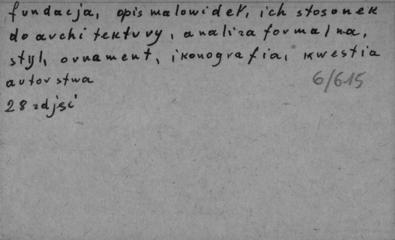 fundacja, opis malowideł, ich stosunek
do architektury, analiza formalna,
styl, ornament, ikonografia, kwestia
autorstwa
6/615
28 zdjęć